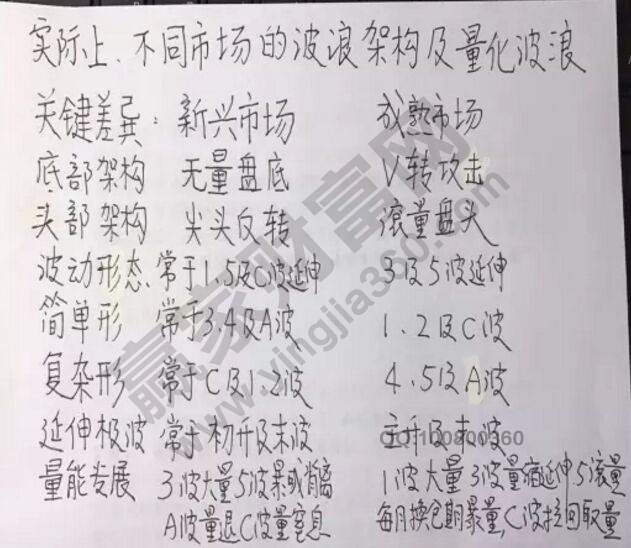 实际上.不同市场的波浪架构及量化波浪
关键差异: 新兴市场 成熟市场
底部架构 无量盘底 V转攻击
头部架构 尖头反转 滚量盘头
波动形态 常于1.5及C波延伸 3及5波延伸
简单形 常于3.4及A波 1.2及C波
复杂形 常于C及1.2波 4.5及A波
延伸极波 常于初升及末波 主升及末波
量能发展 3波大量5波暴或背离 1波大量3波量缩延伸5滚量
A波量退C波量窒息 每月换仓期暴量,C波拉回取量
赢家财富网
www.yingjia360.com
QQ:100800360